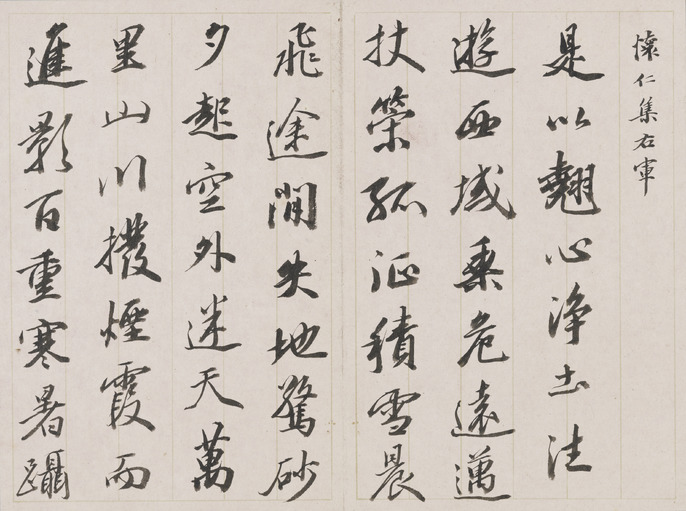 懷仁集右軍
是以翹心淨土法
遊西域乘危遠邁
扙策孤征積雪晨
飛途間失地驚砂
夕起空外迷天萬
里山川撥煙霞而
進影百重寒暑躡